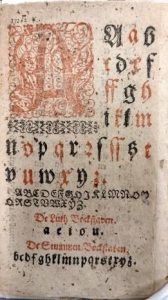 A a b
c d e f
ff g h
i k l m
n o p q r ꝛ ſ ſſ s t
v u w x y z
ABCDEFGHIKLMNOP
QRSTUVWXYZ
De Luth Böckſtaven.
a e i o u.
De Stummen Böckſtaven.
bcdfghklmnpqrstxyz.